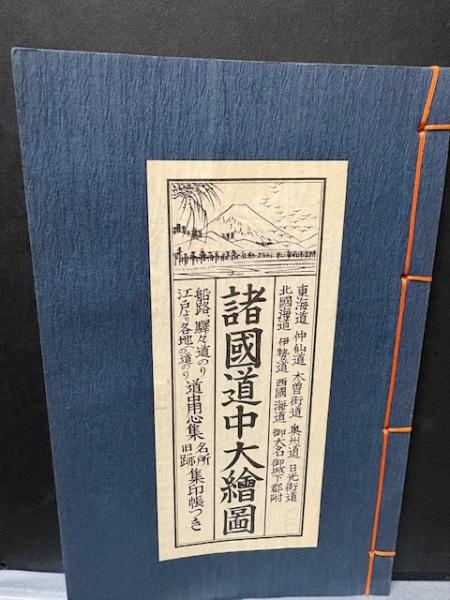 東海道 仲仙道 木曽街道 奥州道 日光街道
北國海道 伊勢道 西國海道 御大名御城下郡附
諸國道中大繪圖
船路 驛々道のり 道中用心集 名所旧跡 集印帳つき
江戸より各地への道のり